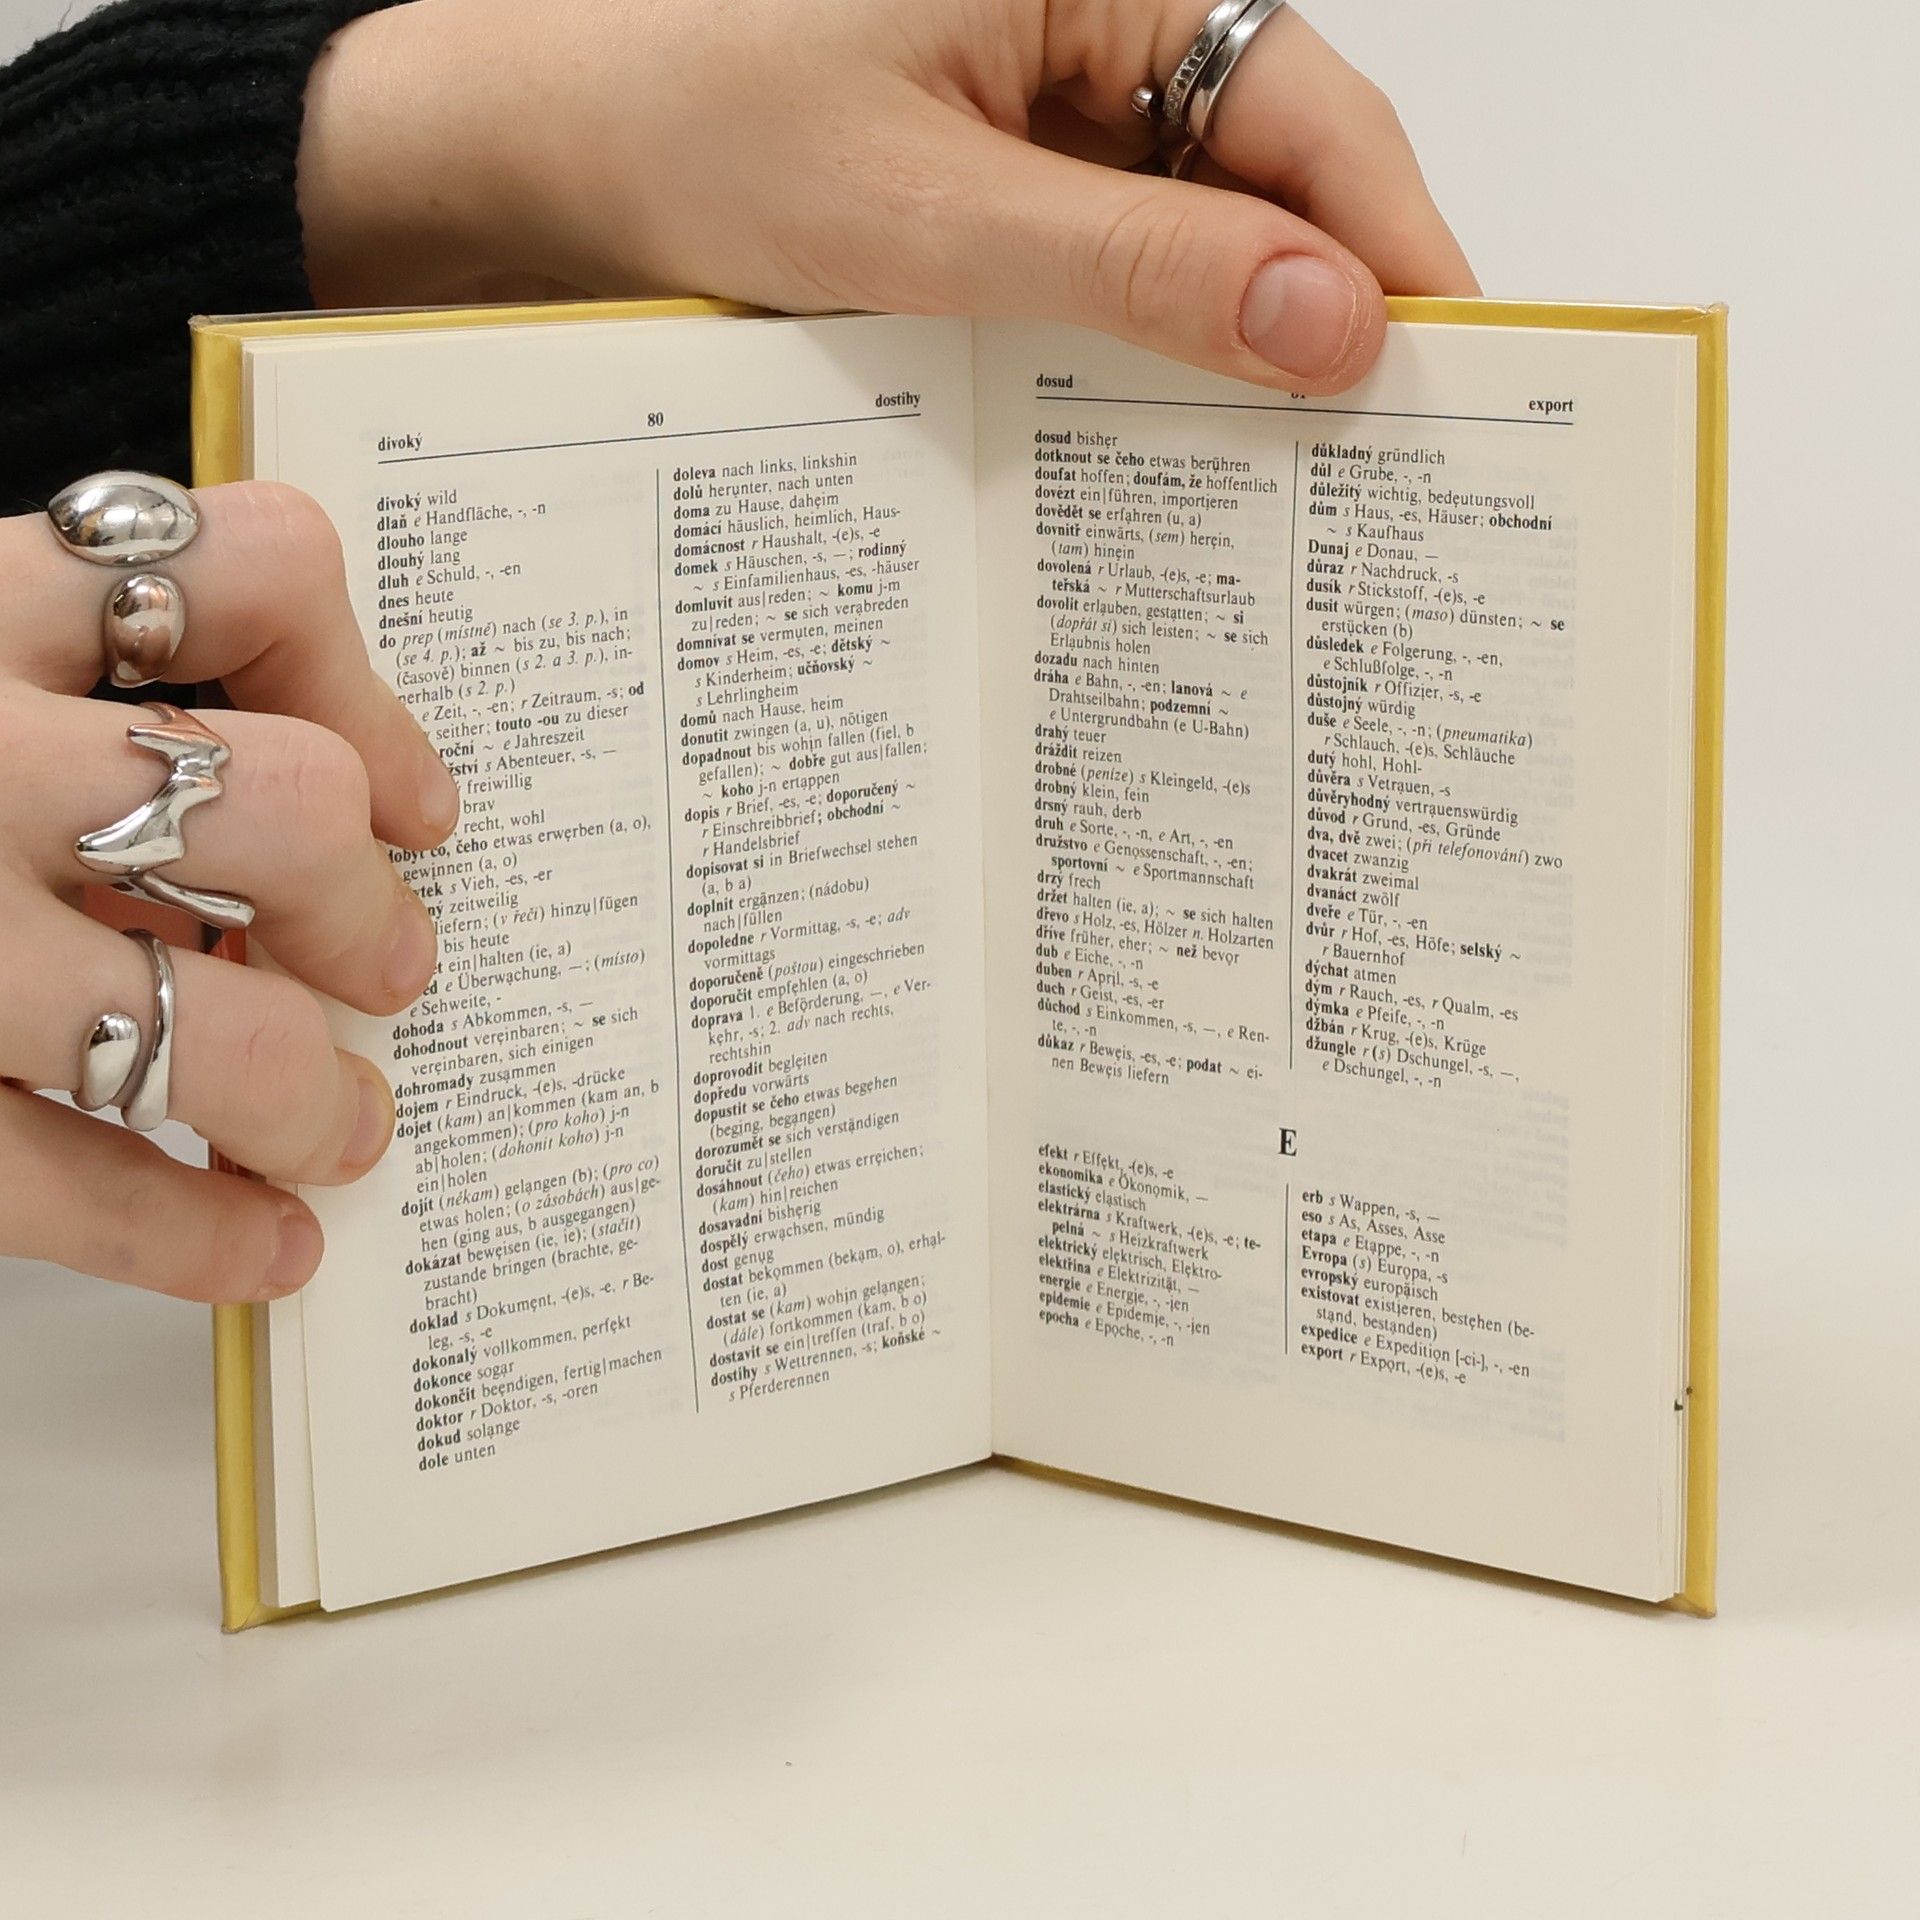 divoký
80
dostihy
divoký wild
dlaň e Handfläche, -, -n
dlouho lange
dlouhý lang
dluh e Schuld, -, -en
dnes heute
dnešní heutig
do prep (místně) nach (se 3. p.), in
(se 4. p.); až ~ bis zu, bis nach;
(časově) binnen (s 2. a 3. p.), in-
nerhalb (s 2. p.)
e Zeit, -, -en; r Zeitraum, -s; od
seither; touto -ou zu dieser
roční ~ e Jahreszeit
s Abenteuer, -s, —
freiwillig
brav
recht, wohl
co, čeho etwas erwẹrben (a, o),
gewịnnen (a, o)
s Vieh, -es, -er
zeitweilig
liefern; (v řeči) hinzụ|fügen
bis heute
ein|halten (ie, a)
e Überwạchung, —; (místo)
e Sehweite, -
dohoda s Abkommen, -s, —
dohodnout verẹinbaren; ~ se sich
verẹinbaren, sich einigen
dohromady zusạmmen
dojem r Eindruck, -(e)s, -drücke
dojet (kam) an|kommen (kam an, b
angekommen); (pro koho) j-n
ab|holen; (dohonit koho) j-n
ein|holen
dojít (někam) gelạngen (b); (pro co)
etwas holen; (o zásobách) aus|ge-
hen (ging aus, b ausgegangen)
dokázat bewẹisen (ie, ie); (stačit)
zustande bringen (brachte, ge-
bracht)
doklad s Dokumẹnt, -(e)s, -e, r Be-
leg, -s, -e
dokonalý vollkommen, perfẹkt
dokonce sogạr
dokončit beẹndigen, fertig|machen
doktor r Doktor, -s, -oren
dokud solạnge
dole unten
doleva nach links, linkshin
dolů herụnter, nach unten
doma zu Hause, dahẹim
domácí häuslich, heimlich, Haus-
domácnost r Haushalt, -(e)s, -e
domek s Häuschen, -s, —; rodinný
~ s Einfamilienhaus, -es, -häuser
domluvit aus|reden; ~ komu j-m
zu|reden; ~ se sich verạbreden
domnívat se vermụten, meinen
domov s Heim, -es, -e; dětský ~
s Kinderheim; učňovský ~
s Lehrlingheim
domů nach Hause, heim
donutit zwingen (a, u), nötigen
dopadnout bis wohịn fallen (fiel, b
gefallen); ~ dobře gut aus|fallen;
~ koho j-n ertạppen
dopis r Brief, -es, -e; doporučený ~
r Einschreibbrief; obchodní ~
r Handelsbrief
dopisovat si in Briefwechsel stehen
(a, b a)
doplnit ergänzen; (nádobu)
nach|füllen
dopoledne r Vormittag, -s, -e; adv
vormittags
doporučeně (poštou) eingeschrieben
doporučit empfẹhlen (a, o)
doprava 1. e Befọ̈rderung, —, e Ver-
kẹhr, -s; 2. adv nach rechts,
rechtshin
doprovodit beglẹiten
dopředu vorwärts
dopustit se čeho etwas begẹhen
(beging, begangen)
dorozumět se sich verstạ̈ndigen
doručit zu|stellen
dosáhnout (čeho) etwas errẹichen;
(kam) hin|reichen
dosavadní bishẹrig
dospělý erwạchsen, mündig
dost genụg
dostat bekọmmen (bekạm, o), erhạl-
ten (ie, a)
dostat se (kam) wohịn gelạngen;
(dále) fortkommen (kam, b o)
dostavit se ein|treffen (traf, b o)
dostihy s Wettrennen, -s; koňské ~
s Pferderennen
dosud
export
dosud bishẹr
dotknout se čeho etwas berụ̈hren
doufat hoffen; doufám, že hoffentlich
dovézt ein|führen, importịeren
dovědět se erfạhren (u, a)
dovnitř einwärts, (sem) herẹin,
(tam) hinẹin
dovolená r Urlaub, -(e)s, -e; ma-
teřská ~ r Mutterschaftsurlaub
dovolit erlạuben, gestạtten; ~ si
(dopřát si) sich leisten; ~ se sich
Erlạubnis holen
dozadu nach hinten
dráha e Bahn, -, -en; lanová ~ e
Drahtseilbahn; podzemní ~
e Untergrundbahn (e U-Bahn)
drahý teuer
dráždit reizen
drobné (peníze) s Kleingeld, -(e)s
drobný klein, fein
drsný rauh, derb
druh e Sorte, -, -n, e Art, -, -en
družstvo e Genọssenschaft, -, -en;
sportovní ~ e Sportmannschaft
drzý frech
držet halten (ie, a); ~ se sich halten
dřevo s Holz, -es, Hölzer n. Holzarten
dříve früher, eher; ~ než bevọr
dub e Eiche, -, -n
duben r Aprịl, -s, -e
duch r Geist, -es, -er
důchod s Einkommen, -s, —, e Ren-
te, -, -n
důkaz r Bewẹis, -es, -e; podat ~ ei-
nen Bewẹis liefern
důkladný gründlich
důl e Grube, -, -n
důležitý wichtig, bedẹutungsvoll
dům s Haus, -es, Häuser; obchodní
~ s Kaufhaus
Dunaj e Donau, —
důraz r Nachdruck, -s
dusík r Stickstoff, -(e)s, -e
dusit würgen; (maso) dünsten; ~ se
erstịcken (b)
důsledek e Folgerung, -, -en,
e Schlußfolge, -, -n
důstojník r Offizịer, -s, -e
důstojný würdig
duše e Seele, -, -n; (pneumatika)
r Schlauch, -(e)s, Schläuche
dutý hohl, Hohl-
důvěra s Vetrauen, -s
důvěryhodný vertrạuenswürdig
důvod r Grund, -es, Gründe
dva, dvě zwei; (při telefonování) zwo
dvacet zwanzig
dvakrát zweimal
dvanáct zwölf
dveře e Tür, -, -en
dvůr r Hof, -es, Höfe; selský ~
r Bauernhof
dýchat atmen
dým r Rauch, -es, r Qualm, -es
dýmka e Pfeife, -, -n
džbán r Krug, -(e)s, Krüge
džungle r (s) Dschungel, -s, —,
e Dschungel, -, -n
E
efekt r Effẹkt, -(e)s, -e
ekonomika e Ökonọmik, —
elastický elạstisch
elektrárna s Kraftwerk, -(e)s, -e; te-
pelná ~ s Heizkraftwerk
elektrický elẹktrisch, Elẹktro-
elektřina e Elektrizitạ̈t, —
energie e Energịe, -, -ịen
epidemie e Epidemịe, -, -ịen
epocha e Epọche, -, -n
erb s Wappen, -s, —
eso s As, Asses, Asse
etapa e Etạppe, -, -n
Evropa (s) Eurọpa, -s
evropský europạ̈isch
existovat existịeren, bestẹhen (be-
stand, bestạnden)
expedice e Expedition [-ci-], -, -en
export r Expọrt, -(e)s, -e